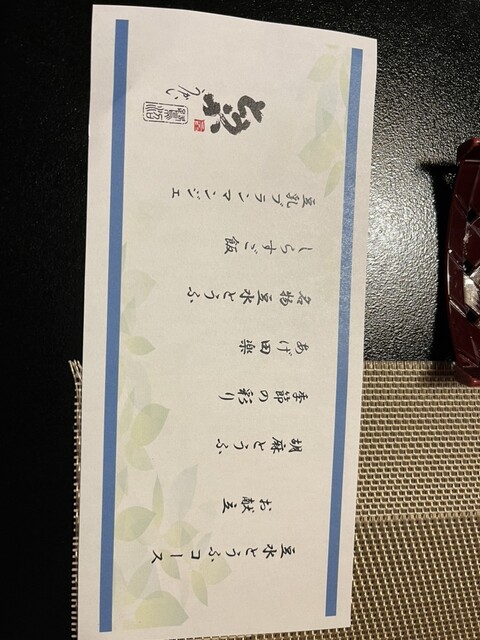 豆水とうふコース
お献立
胡麻とうふ
季節の彩り
あげ田楽
名物 豆水とうふ
しらすご飯
豆乳ブランマンジェ